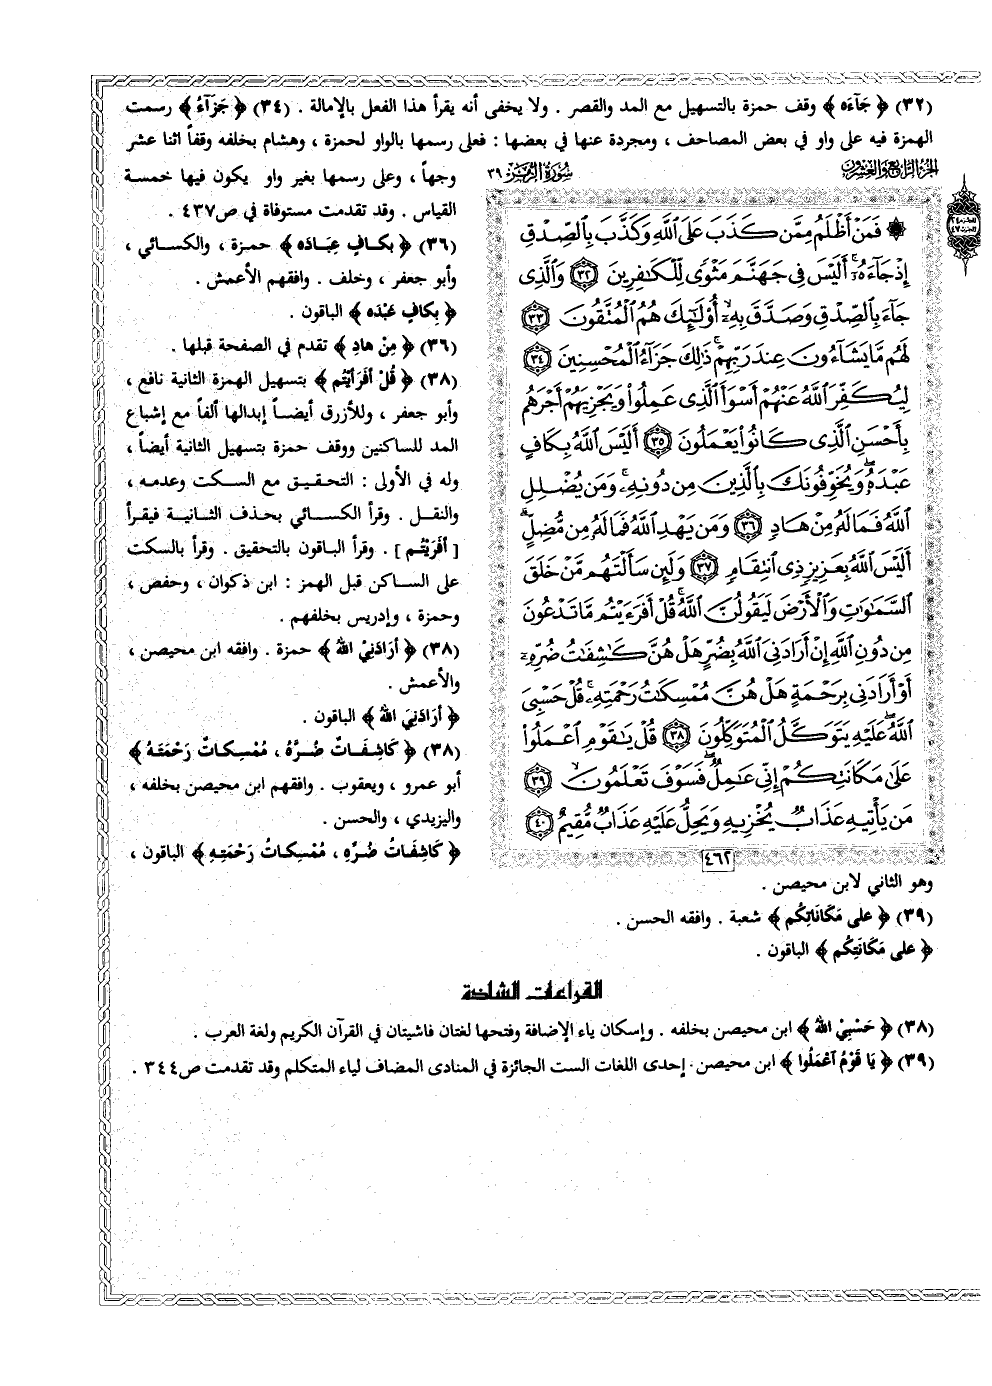 (٣٢) ﴿ جَآءَه ﴾ وقف حمزة بالتسهيل مع المد والقصر . ولا يخفى أنه يقرأ هذا الفعل بالإمالة . (٣٤) ﴿ جَزَآءُ ﴾ رسمت
الهمزة فيه على واو في بعض المصاحف ، ومجردة عنها في بعضها : فعلى رسمها بالواو لحمزة ، وهشام بخلفه وقفاً اثنا عشر
وجهاً ، وعلى رسمها بغير واو يكون فيها خمسة
القياس . وقد تقدمت مستوفاة في ص٤٣٧ .
(٣٦) ﴿ بِكافٍ عِبَادَه ﴾ حمزة ، والكسائي ،
وأبو جعفر ، وخلف . وافقهم الأعمش .
﴿ بِكافٍ عَبْدَه ﴾ الباقون .
(٣٦) ﴿ مِنْ هادٍ ﴾ تقدم في الصفحة قبلها .
(٣٨) ﴿ قُلْ أفَرَأيْتُم ﴾ بتسهيل الهمزة الثانية نافع ،
وأبو جعفر ، وللأزرق أيضاً إبدالها ألفاً مع إشباع
المد للساكنين ووقف حمزة بتسهيل الثانية أيضاً ،
وله في الأولى : التحقيق مع السكت وعدمه ،
والنقل . وقرأ الكسائي بحذف الثانية فيقرأ
[ أفَرَيْتُم ] . وقرأ الباقون بالتحقيق . وقرأ بالسكت
على الساكن قبل الهمز : ابن ذكوان ، وحفص ،
وحمزة ، وإدريس بخلفهم .
(٣٨) ﴿ أرَادَنِيْ اللهُ ﴾ حمزة . وافقه ابن محيصن ،
والأعمش .
﴿ أرَادَنِيَ اللهُ ﴾ الباقون .
(٣٨) ﴿ كَاشِفَاتٌ ضُرَّهُ ، مُمْسِكاتٌ رَحْمَتَهُ ﴾
أبو عمرو ، ويعقوب . وافقهم ابن محيصن بخلفه ،
واليزيدي ، والحسن .
﴿ كَاشِفَاتُ ضُرِّهِ ، مُمْسِكاتُ رَحْمَتِهِ ﴾ الباقون ،
الجزء الرابع والعشرون
سُورَةُ الزُّمَر ٣٩
۞ فَمَنْ أَظْلَمُ مِمَّن كَذَبَ عَلَى ٱللَّهِ وَكَذَّبَ بِٱلصِّدْقِ
إِذْ جَآءَهُۥٓ ۚ أَلَيْسَ فِى جَهَنَّمَ مَثْوًى لِّلْكَٰفِرِينَ ٣٢ وَٱلَّذِى
جَآءَ بِٱلصِّدْقِ وَصَدَّقَ بِهِۦٓ ۙ أُو۟لَٰٓئِكَ هُمُ ٱلْمُتَّقُونَ ٣٣
لَهُم مَّا يَشَآءُونَ عِندَ رَبِّهِمْ ۚ ذَٰلِكَ جَزَآءُ ٱلْمُحْسِنِينَ ٣٤
لِيُكَفِّرَ ٱللَّهُ عَنْهُمْ أَسْوَأَ ٱلَّذِى عَمِلُوا۟ وَيَجْزِيَهُمْ أَجْرَهُم
بِأَحْسَنِ ٱلَّذِى كَانُوا۟ يَعْمَلُونَ ٣٥ أَلَيْسَ ٱللَّهُ بِكَافٍ
عَبْدَهُۥ ۖ وَيُخَوِّفُونَكَ بِٱلَّذِينَ مِن دُونِهِۦ ۚ وَمَن يُضْلِلِ
ٱللَّهُ فَمَا لَهُۥ مِنْ هَادٍ ٣٦ وَمَن يَهْدِ ٱللَّهُ فَمَا لَهُۥ مِن مُّضِلٍّ ۗ
أَلَيْسَ ٱللَّهُ بِعَزِيزٍ ذِى ٱنتِقَامٍ ٣٧ وَلَئِن سَأَلْتَهُم مَّنْ خَلَقَ
ٱلسَّمَٰوَٰتِ وَٱلْأَرْضَ لَيَقُولُنَّ ٱللَّهُ ۚ قُلْ أَفَرَءَيْتُم مَّا تَدْعُونَ
مِن دُونِ ٱللَّهِ إِنْ أَرَادَنِىَ ٱللَّهُ بِضُرٍّ هَلْ هُنَّ كَٰشِفَٰتُ ضُرِّهِۦٓ
أَوْ أَرَادَنِى بِرَحْمَةٍ هَلْ هُنَّ مُمْسِكَٰتُ رَحْمَتِهِۦ ۚ قُلْ حَسْبِىَ
ٱللَّهُ ۖ عَلَيْهِ يَتَوَكَّلُ ٱلْمُتَوَكِّلُونَ ٣٨ قُلْ يَٰقَوْمِ ٱعْمَلُوا۟
عَلَىٰ مَكَانَتِكُمْ إِنِّى عَٰمِلٌ ۖ فَسَوْفَ تَعْلَمُونَ ٣٩
مَن يَأْتِيهِ عَذَابٌ يُخْزِيهِ وَيَحِلُّ عَلَيْهِ عَذَابٌ مُّقِيمٌ ٤٠
٤٦٢
وهو الثاني لابن محيصن .
(٣٩) ﴿ على مَكَانَاتِكُم ﴾ شعبة . وافقه الحسن .
﴿ على مَكَانَتِكُم ﴾ الباقون .
القراءات الشاذة
(٣٨) ﴿ حَسْبِيْ اللهُ ﴾ ابن محيصن بخلفه . وإسكان ياء الإضافة وفتحها لغتان فاشيتان في القرآن الكريم ولغة العرب .
(٣٩) ﴿ يَا قَوْمُ آعْمَلُوا ﴾ ابن محيصن . إحدى اللغات الست الجائزة في المنادى المضاف لياء المتكلم وقد تقدمت ص٣٤٤ .